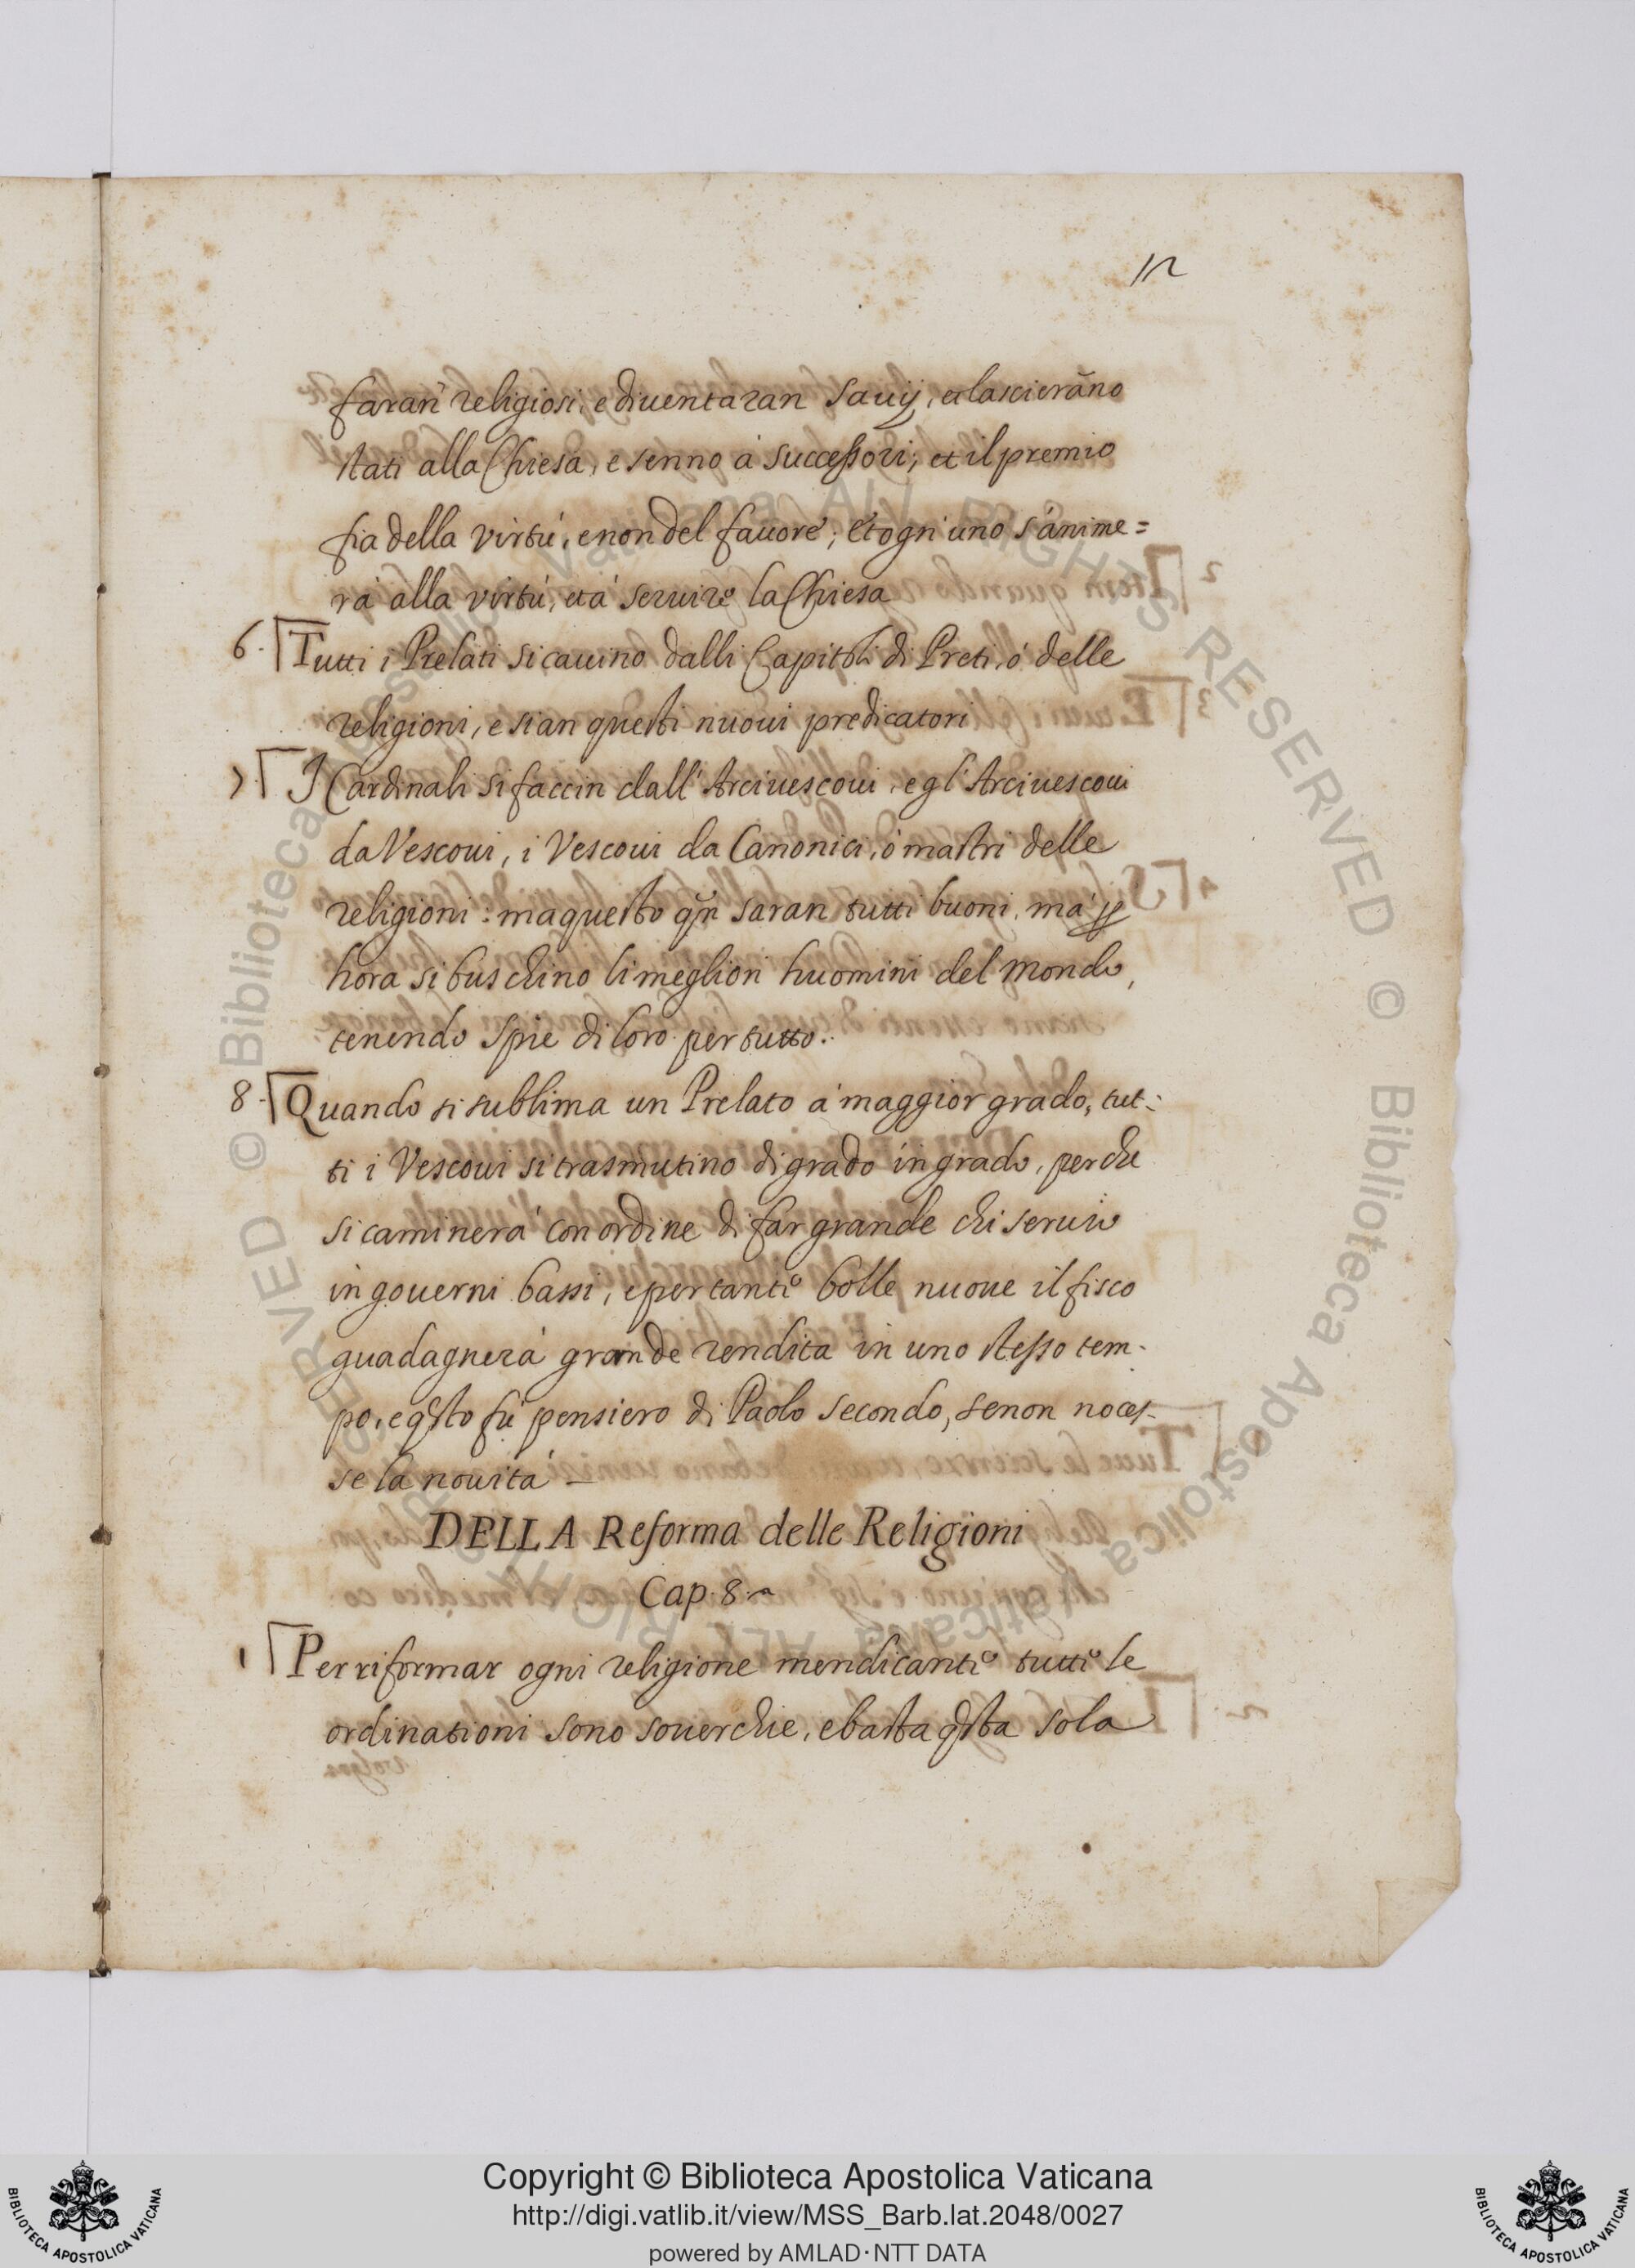 12
faran' religiosi, e diuentaran Sauij, et lascierāno
stati alla Chiesa, e senno à successori; et il premio
fia della virtù, e non del fauore; et ogn'uno s'anime=
rà alla virtù, et à seruire la Chiesa
6. Tutti i Prelati si cauino dalli Capitoli di Preti, ò delle
religioni, e sian questi nuoui predicatori
7. I Cardinali si faccin dall'Arciuescoui, e gl'Arciuescoui
da Vescoui, i Vescoui da Canonici, ò mastri delle
religioni: ma questo qñ saran tutti buoni, mà ꝑ
hora si buschino li megliori huomini del mondo,
tenendo spie di loro per tutto.
8. Quando si sublima un Prelato à maggior grado, tut-
ti i Vescoui si trasmutino di grado in grado, perche
si caminerà con ordine di far grande chi seruio
in gouerni bassi, e per tante bolle nuoue il fisco
guadagnerà grande rendita in uno stesso tem-
po, e q̃sto fù pensiero di Paolo secondo, se non noces-
se la nouità —
DELLA Reforma delle Religioni
Cap. 8.
1 Per riformar ogni religione mendicante tutte le
ordinationi sono souerchie, e basta q̃sta sola
© Biblioteca Apostolica Vaticana ALL RIGHTS RESERVED © Biblioteca Apostolica Vaticana ALL RIGHTS RESERVED
BIBLIOTECA APOSTOLICA VATICANA
Copyright © Biblioteca Apostolica Vaticana
http://digi.vatlib.it/view/MSS_Barb.lat.2048/0027
powered by AMLAD·NTT DATA
BIBLIOTECA APOSTOLICA VATICANA